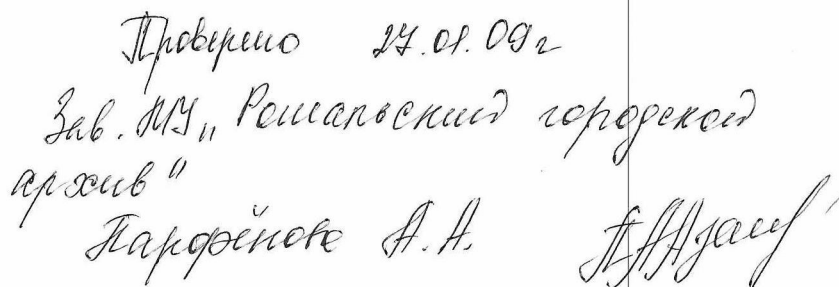 Проверено 27.01.09г
Зав. МУ „Рошальский городской
архив"
Парфёнова А.А.